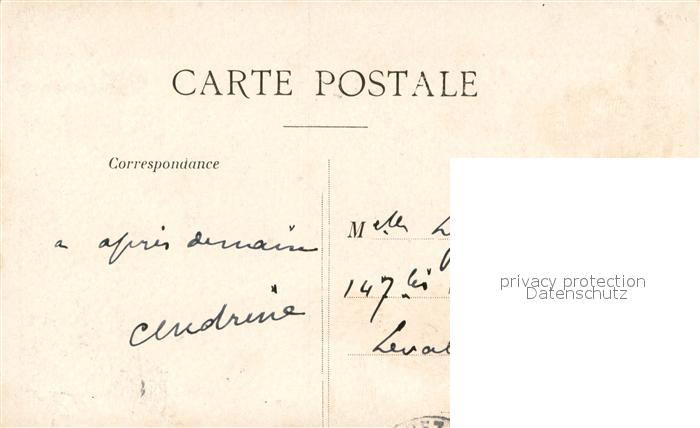 CARTE POSTALE
Correspondance
a après demain
Melle L
147 bis
Leval
privacy protection
Datenschutz